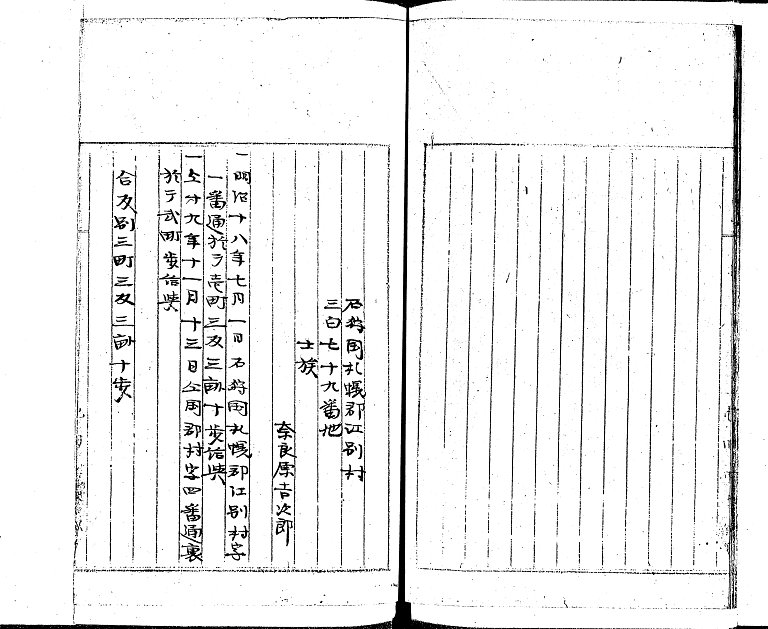 石狩国札幌郡江別村
三百七十九番地
士族
奈良原吉次郎
一明治十八年七月一日石狩国札幌郡江別村字
一番通於テ壱町三反三畝十歩給與
一仝廿九年十一月十三日仝国郡村字四番通裏
於テ弐町歩給與
合反別三町三反三畝十歩